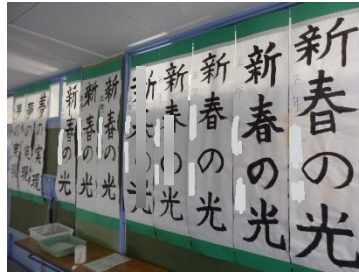 新春の光
新春の光
新春の光
新春の光
新春の光
新春の光
新春の光
夢の実現
夢の実現
夢の実現